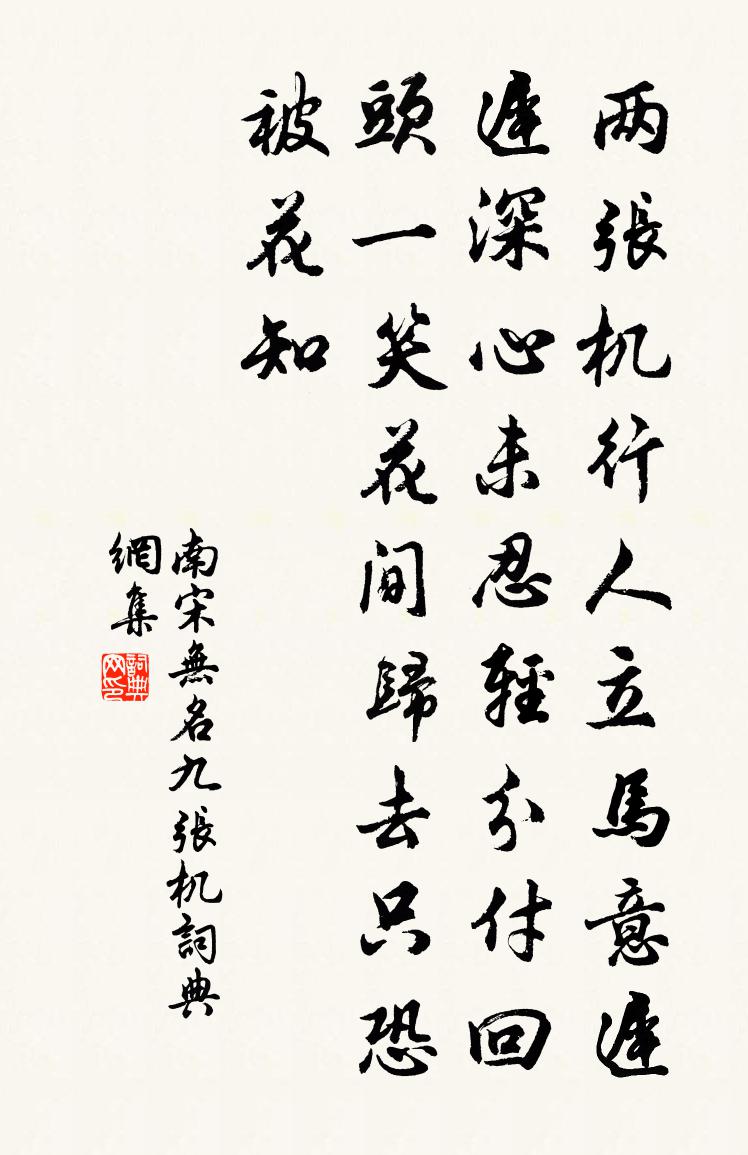 两張机行人立馬意遲
遲深心未忍輕分付回
頭一笑花間歸去只恐
被花知
南宋無名九張机詞典
網集
詞典网印